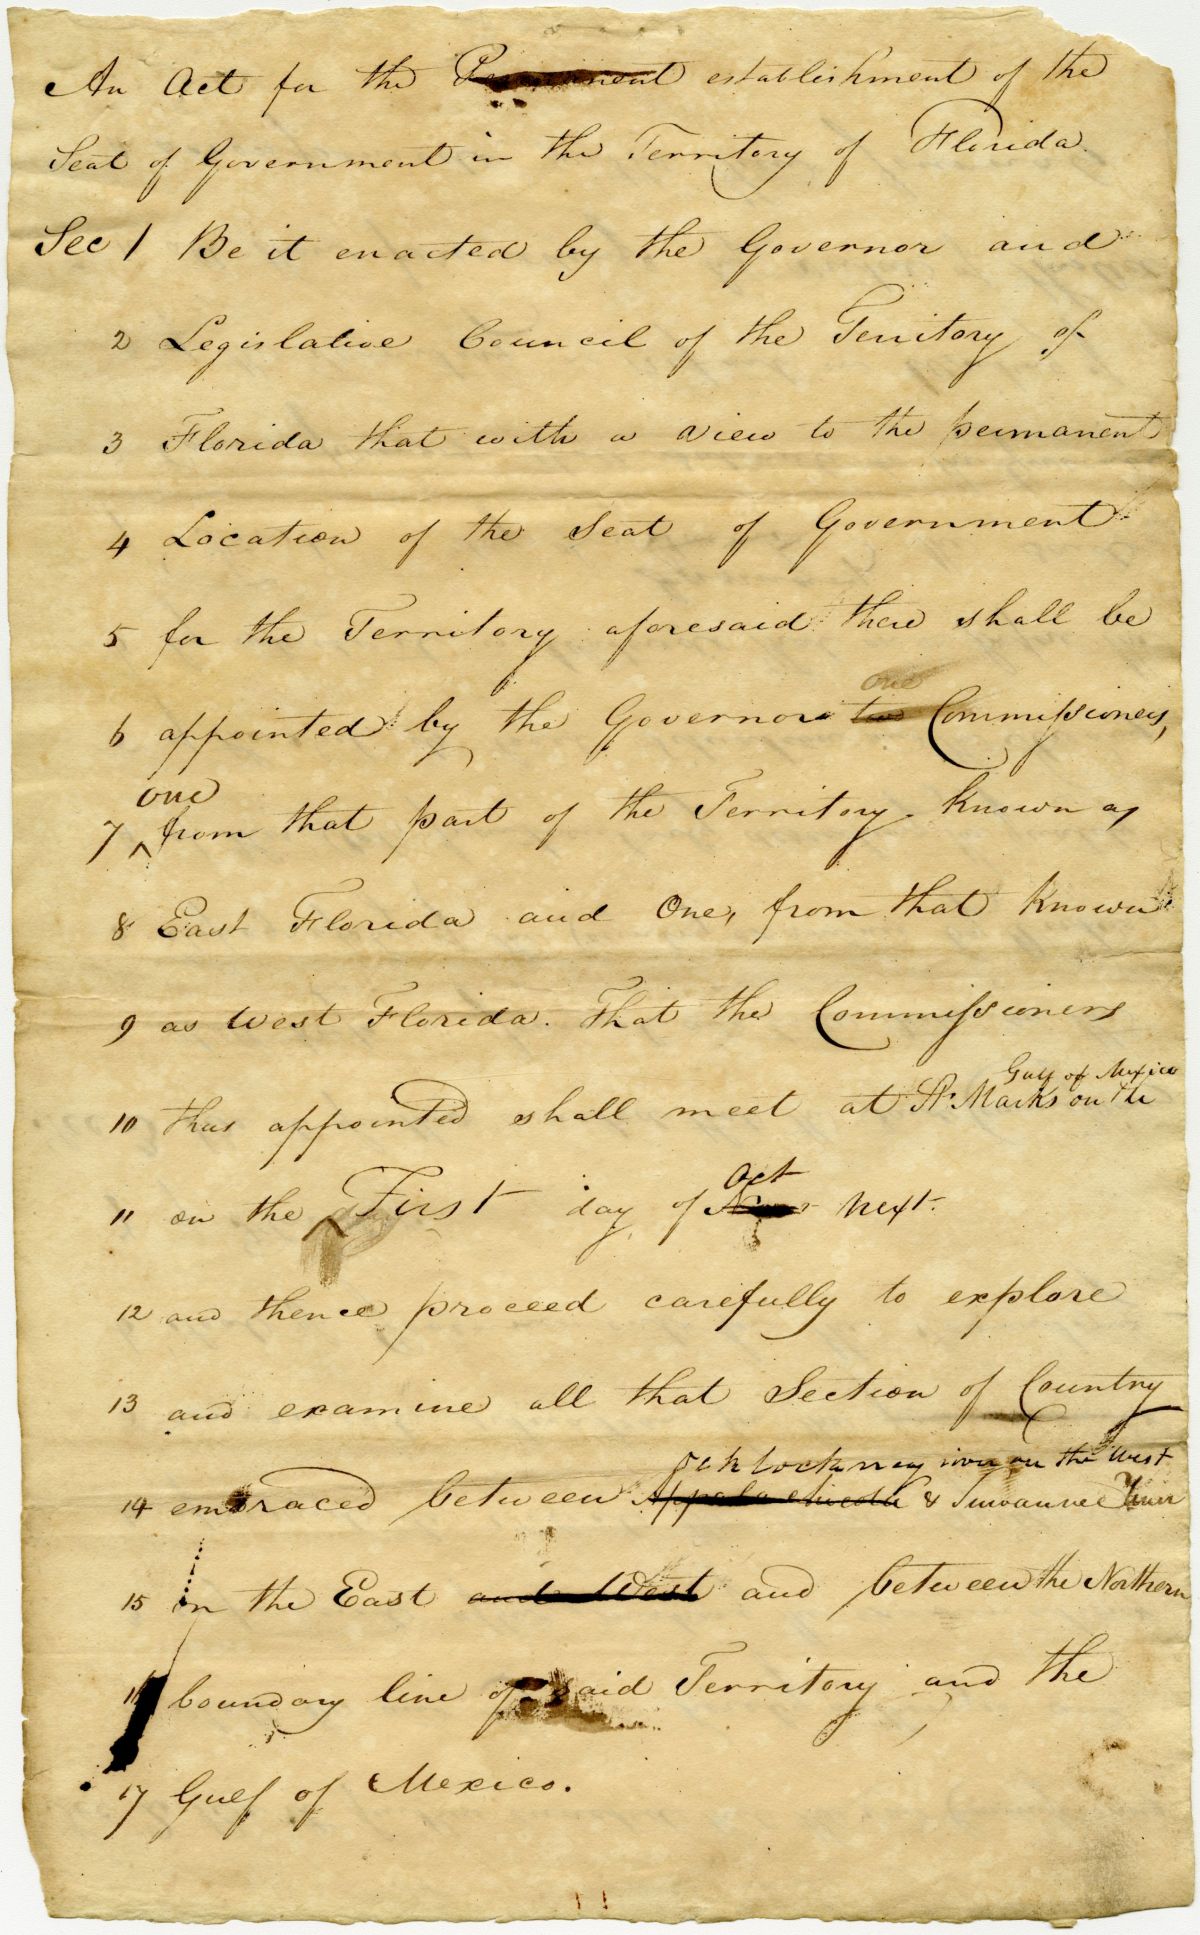 An Act for the Permanent establishment of the
Seat of Government in the Territory of Florida.
Sec 1 Be it enacted by the Governor and
2 Legislative Council of the Territory of
3 Florida that with a view to the permanent
4 Location of the Seat of Government
5 for the Territory aforesaid there shall be
one
6 appointed by the Governor two Commissioners,
one
7 ^ from that part of the Territory known as
8 East Florida and One, from that known
9 as West Florida. That the Commissioners
Gulf of Mexico
10 thus appointed shall meet at St. Marks on the
Oct
11 on the ^ First day of next.
12 and thence proceed carefully to explore
13 and examine all that Section of Country
Ochlockney river on the West
14 embraced between Appalachicola & Suwannee River
15 on the East and West and between the Northern
16 boundary line of said Territory and the
17 Gulf of Mexico.